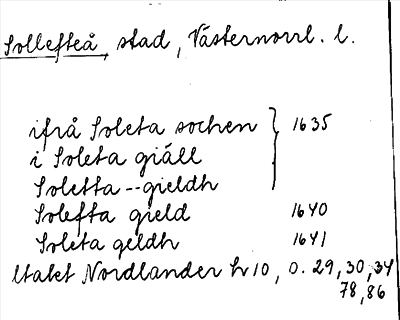 Sollefteå, stad, Västernorrl. l.
ifrå Soleta sochen } 1635
i Soleta giäll
Soletta -- gieldh
Solefta gield 1640
Soleta geldh 1641
Nordlander h 10, o. 29, 30, 34
78, 86